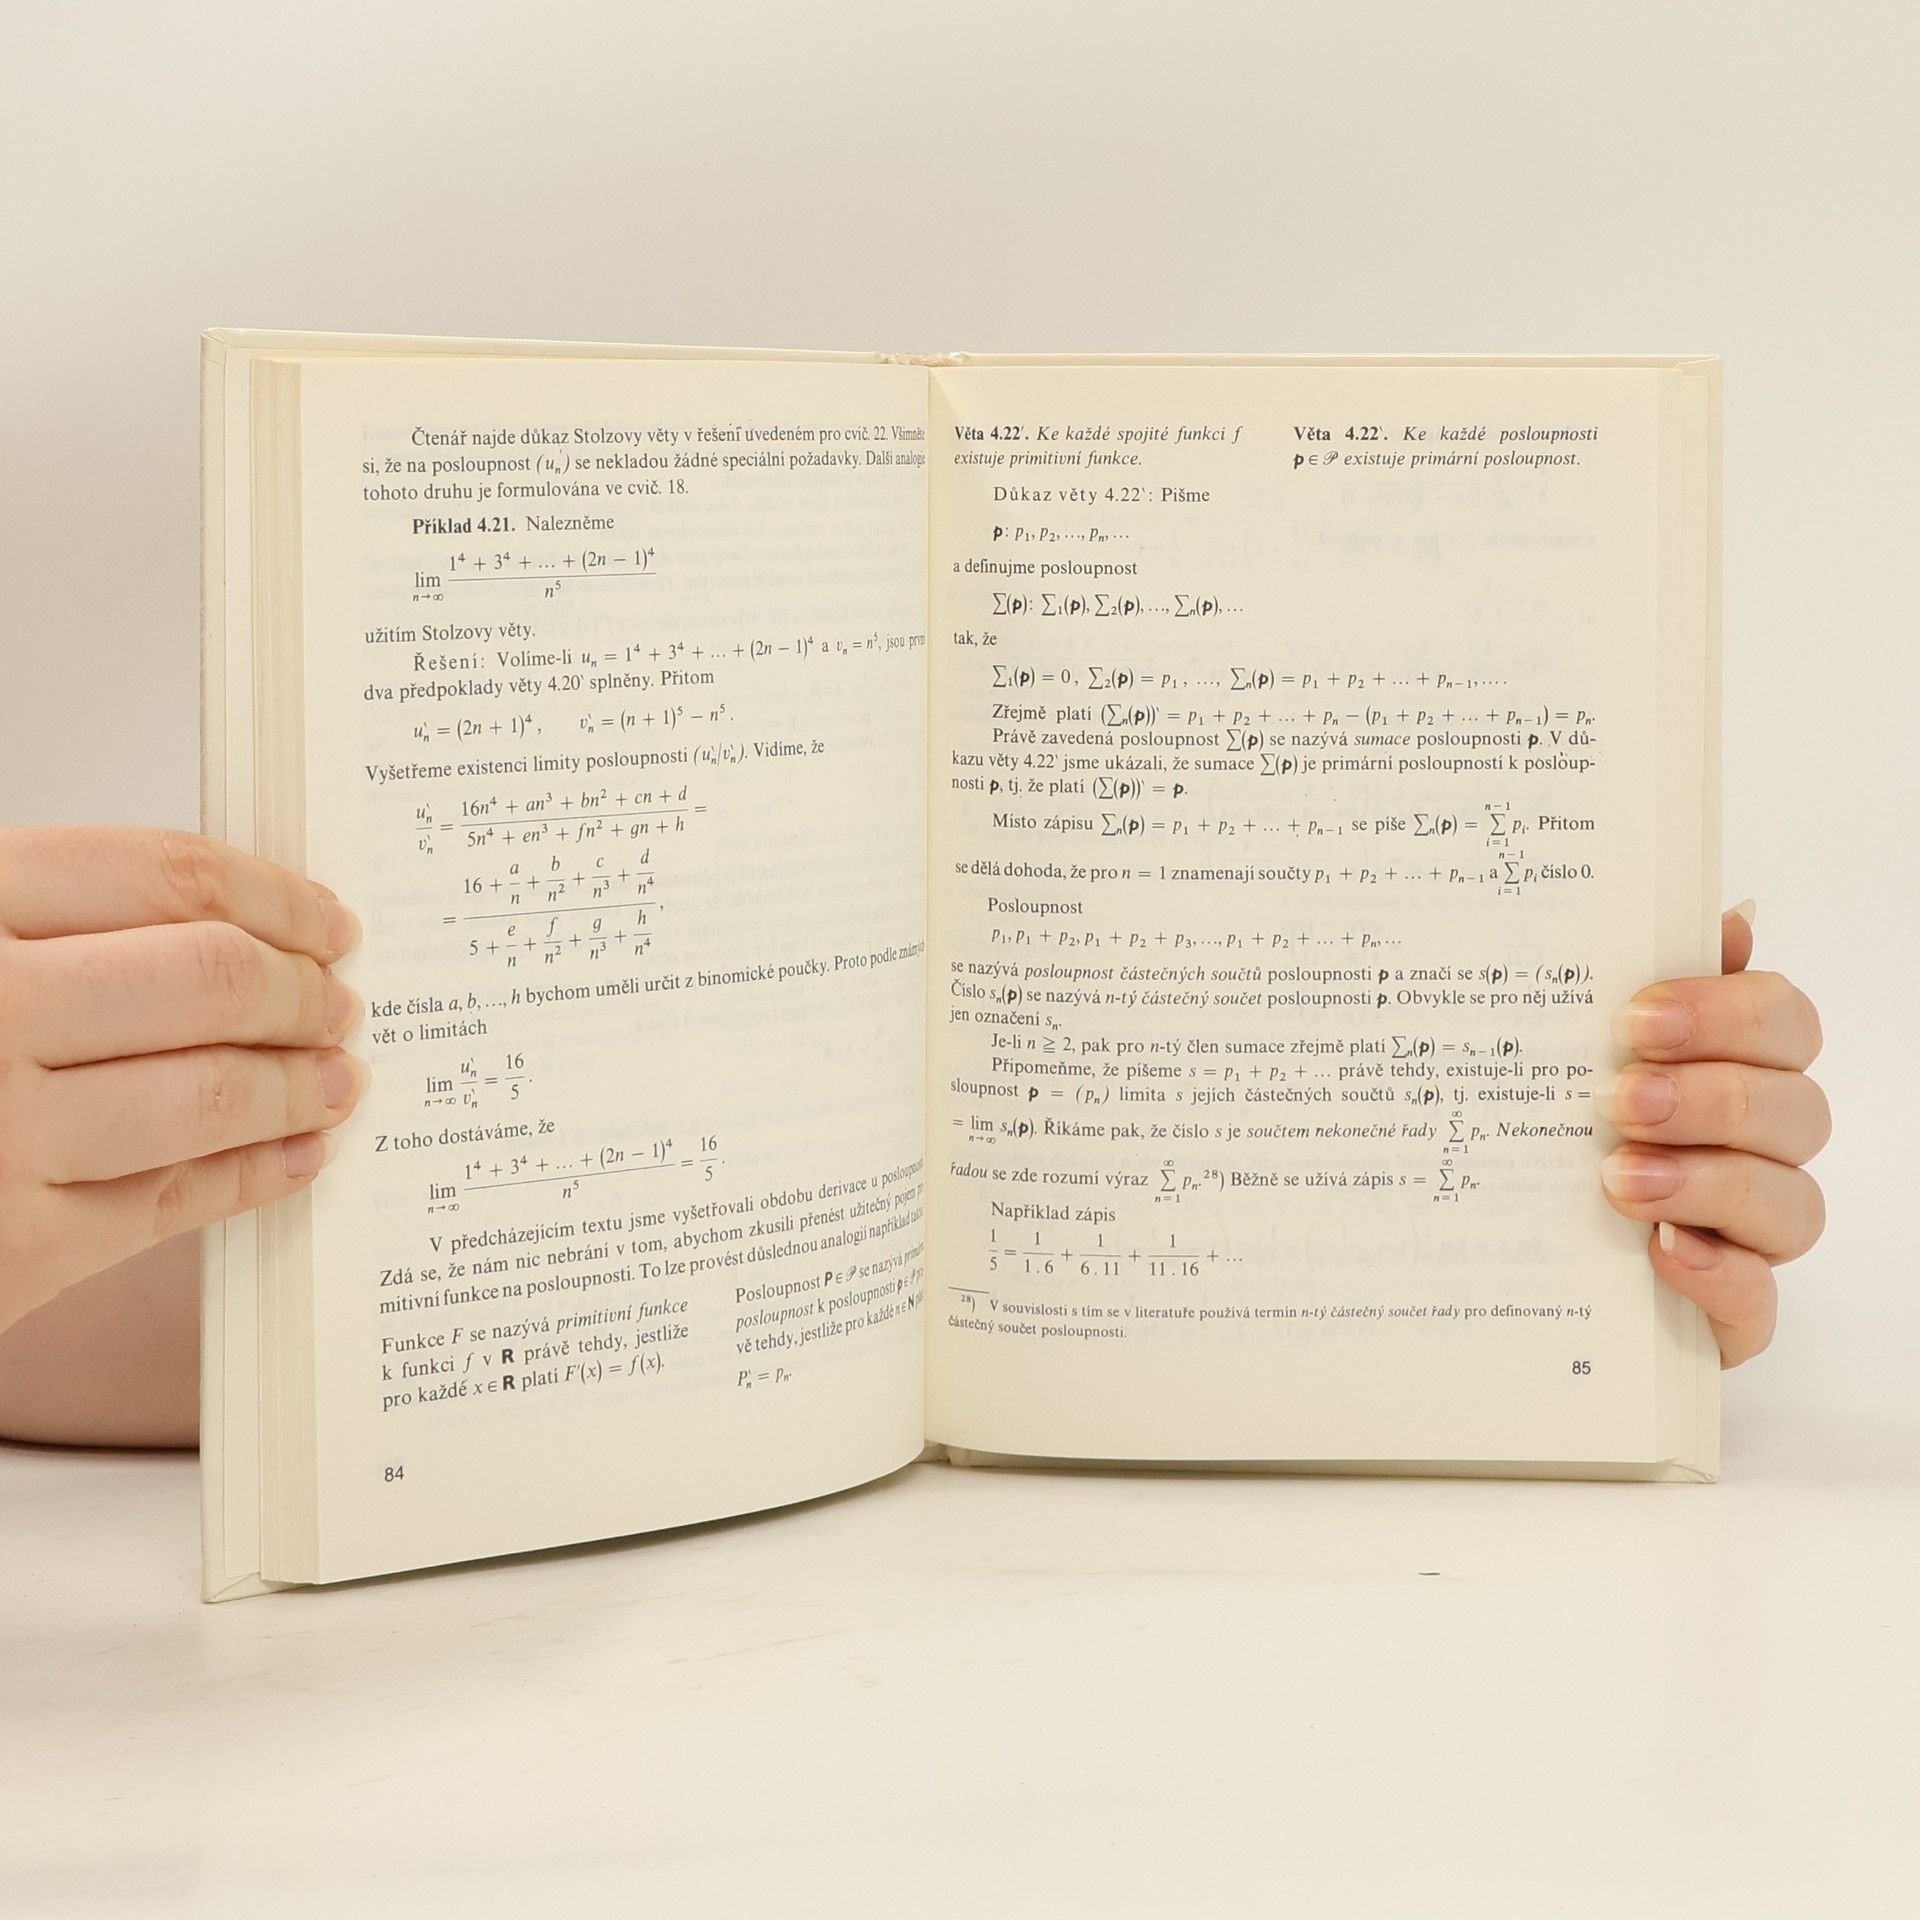 Čtenář najde důkaz Stolzovy věty v řešení uvedeném pro cvič. 22. Všimněte
si, že na posloupnost (uₙ) se nekladou žádné speciální požadavky. Další analogie
tohoto druhu je formulována ve cvič. 18.
Příklad 4.21. Nalezněme
lim n→∞ (1⁴ + 3⁴ + ... + (2n − 1)⁴) / n⁵
užitím Stolzovy věty.
Řešení: Volíme-li uₙ = 1⁴ + 3⁴ + ... + (2n − 1)⁴ a vₙ = n⁵, jsou první
dva předpoklady věty 4.20‵ splněny. Přitom
u‵ₙ = (2n + 1)⁴, v‵ₙ = (n + 1)⁵ − n⁵.
Vyšetřeme existenci limity posloupnosti (u‵ₙ/v‵ₙ). Vidíme, že
u‵ₙ / v‵ₙ = (16n⁴ + an³ + bn² + cn + d) / (5n⁴ + en³ + fn² + gn + h) =
= (16 + a/n + b/n² + c/n³ + d/n⁴) / (5 + e/n + f/n² + g/n³ + h/n⁴),
kde čísla a, b, ..., h bychom uměli určit z binomické poučky. Proto podle známých
vět o limitách
lim n→∞ u‵ₙ / v‵ₙ = 16/5.
Z toho dostáváme, že
lim n→∞ (1⁴ + 3⁴ + ... + (2n − 1)⁴) / n⁵ = 16/5.
V předcházejícím textu jsme vyšetřovali obdobu derivace u posloupností.
Zdá se, že nám nic nebrání v tom, abychom zkusili přenést užitečný pojem pri-
mitivní funkce na posloupnosti. To lze provést důslednou analogií například takto:
Funkce F se nazývá primitivní funkce
k funkci f v R právě tehdy, jestliže
pro každé x ∈ R platí F′(x) = f(x).
Posloupnost P ∈ 𝒫 se nazývá primární
posloupnost k posloupnosti p ∈ 𝒫 prá-
vě tehdy, jestliže pro každé n ∈ N platí
P‵ₙ = pₙ.
84
Věta 4.22′. Ke každé spojité funkci f
existuje primitivní funkce.
Věta 4.22‵. Ke každé posloupnosti
p ∈ 𝒫 existuje primární posloupnost.
Důkaz věty 4.22‵: Pišme
p: p₁, p₂, ..., pₙ, ...
a definujme posloupnost
∑(p): ∑₁(p), ∑₂(p), ..., ∑ₙ(p), ...
tak, že
∑₁(p) = 0, ∑₂(p) = p₁, ..., ∑ₙ(p) = p₁ + p₂ + ... + pₙ₋₁, ....
Zřejmě platí (∑ₙ(p))‵ = p₁ + p₂ + ... + pₙ − (p₁ + p₂ + ... + pₙ₋₁) = pₙ.
Právě zavedená posloupnost ∑(p) se nazývá sumace posloupnosti p. V dů-
kazu věty 4.22‵ jsme ukázali, že sumace ∑(p) je primární posloupností k posloup-
nosti p, tj. že platí (∑(p))‵ = p.
Místo zápisu ∑ₙ(p) = p₁ + p₂ + ... + pₙ₋₁ se píše ∑ₙ(p) = ∑ᵢ₌₁ⁿ⁻¹ pᵢ. Přitom
se dělá dohoda, že pro n = 1 znamenají součty p₁ + p₂ + ... + pₙ₋₁ a ∑ᵢ₌₁ⁿ⁻¹ pᵢ číslo 0.
Posloupnost
p₁, p₁ + p₂, p₁ + p₂ + p₃, ..., p₁ + p₂ + ... + pₙ, ...
se nazývá posloupnost částečných součtů posloupnosti p a značí se s(p) = (sₙ(p)).
Číslo sₙ(p) se nazývá n-tý částečný součet posloupnosti p. Obvykle se pro něj užívá
jen označení sₙ.
Je-li n ≧ 2, pak pro n-tý člen sumace zřejmě platí ∑ₙ(p) = sₙ₋₁(p).
Připomeňme, že píšeme s = p₁ + p₂ + ... právě tehdy, existuje-li pro po-
sloupnost p = (pₙ) limita s jejích částečných součtů sₙ(p), tj. existuje-li s =
= lim n→∞ sₙ(p). Říkáme pak, že číslo s je součtem nekonečné řady ∑ₙ₌₁^∞ pₙ. Nekonečnou
řadou se zde rozumí výraz ∑ₙ₌₁^∞ pₙ.²⁸) Běžně se užívá zápis s = ∑ₙ₌₁^∞ pₙ.
Například zápis
1/5 = 1/(1.6) + 1/(6.11) + 1/(11.16) + ...
²⁸) V souvislosti s tím se v literatuře používá termín n-tý částečný součet řady pro definovaný n-tý
částečný součet posloupnosti.
85